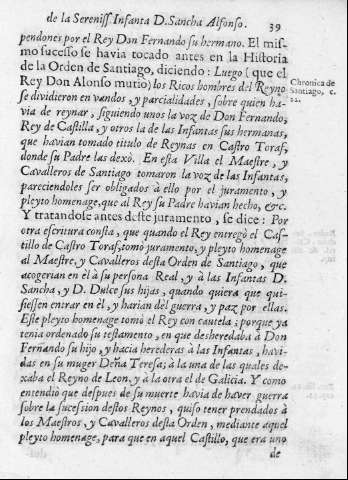 de la Sereniss. Infanta D. Sancha Alfonso. 39
pendones por el Rey Don Fernando su hermano. El mis-
mo sucesso se havia tocado antes en la Historia
de la Orden de Santiago, diciendo: Luego (que el
Rey Don Alonso murio) los Ricos hombres del Reyno
se dividieron en vandos, y parcialidades, sobre quien ha-
via de reynar, siguiendo unos la voz de Don Fernando,
Rey de Castilla, y otros la de las Infantas sus hermanas,
que havian tomado titulo de Reynas en Castro Toraf,
donde su Padre las dexò. En esta Villa el Maestre, y
Cavalleros de Santiago tomaron la voz de las Infantas,
pareciendoles ser obligados à ello por el juramento, y
pleyto homenage, que al Rey su Padre havian hecho, &c.
Y tratandole antes deste juramento, se dice: Por
otra escritura consta, que quando el Rey entregò el Cas-
tillo de Castro Toraf, tomò juramento, y pleyto homenage
al Maestre, y Cavalleros desta Orden de Santiago, que
acogerian en èl à su persona Real, y à las Infantas D.
Sancha, y D. Dulce sus hijas, quando quiera que qui-
siessen entrar en èl, y harian del guerra, y paz por ellas.
Este pleyto homenage tomò el Rey con cautela; porque ya
tenia ordenado su testamento, en que desheredaba à Don
Fernando su hijo, y hacia herederas à las Infantas, havi-
das en su muger Doña Teresa; à la una de las quales de-
xaba el Reyno de Leon, y à la otra el de Galicia. Y como
entendiò que despues de su muerte havia de haver guerra
sobre la sucession destos Reynos, quiso tener prendados à
los Maestros, y Cavalleros desta Orden, mediante aquel
pleyto homenage, para que en aquel Castillo, que era uno
de
Chronica de
Santiago, c.